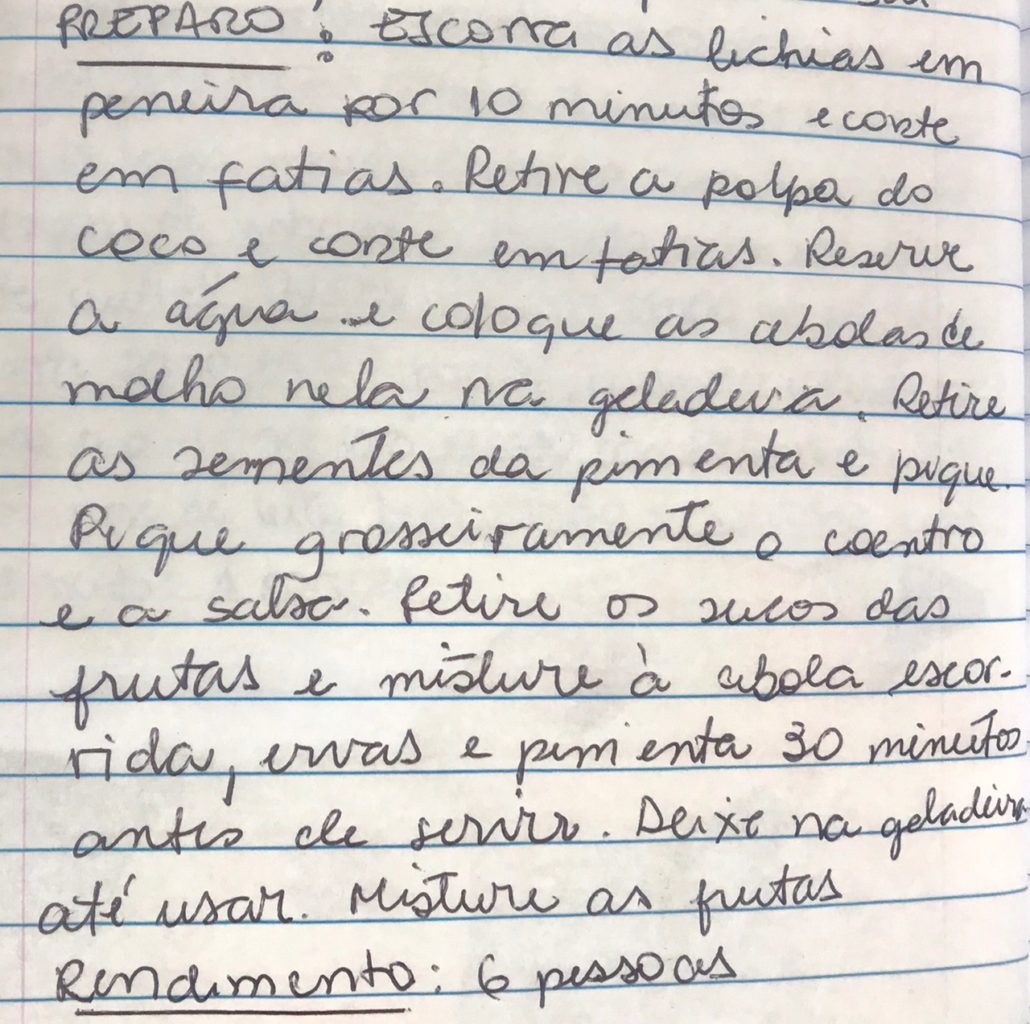 PREPARO: Escorra as lichias em
peneira por 10 minutos e corte
em fatias. Retire a polpa do
coco e corte em fatias. Reserve
a água e coloque as cebolas de
molho nela na geladeira. Retire
as sementes da pimenta e pique.
Pique grosseiramente o coentro
e a salsa. Retire os sucos das
frutas e misture à cebola escor-
rida, ervas e pimenta 30 minutos
antes de servir. Deixe na geladeira
até usar. Misture as frutas
Rendimento: 6 pessoas